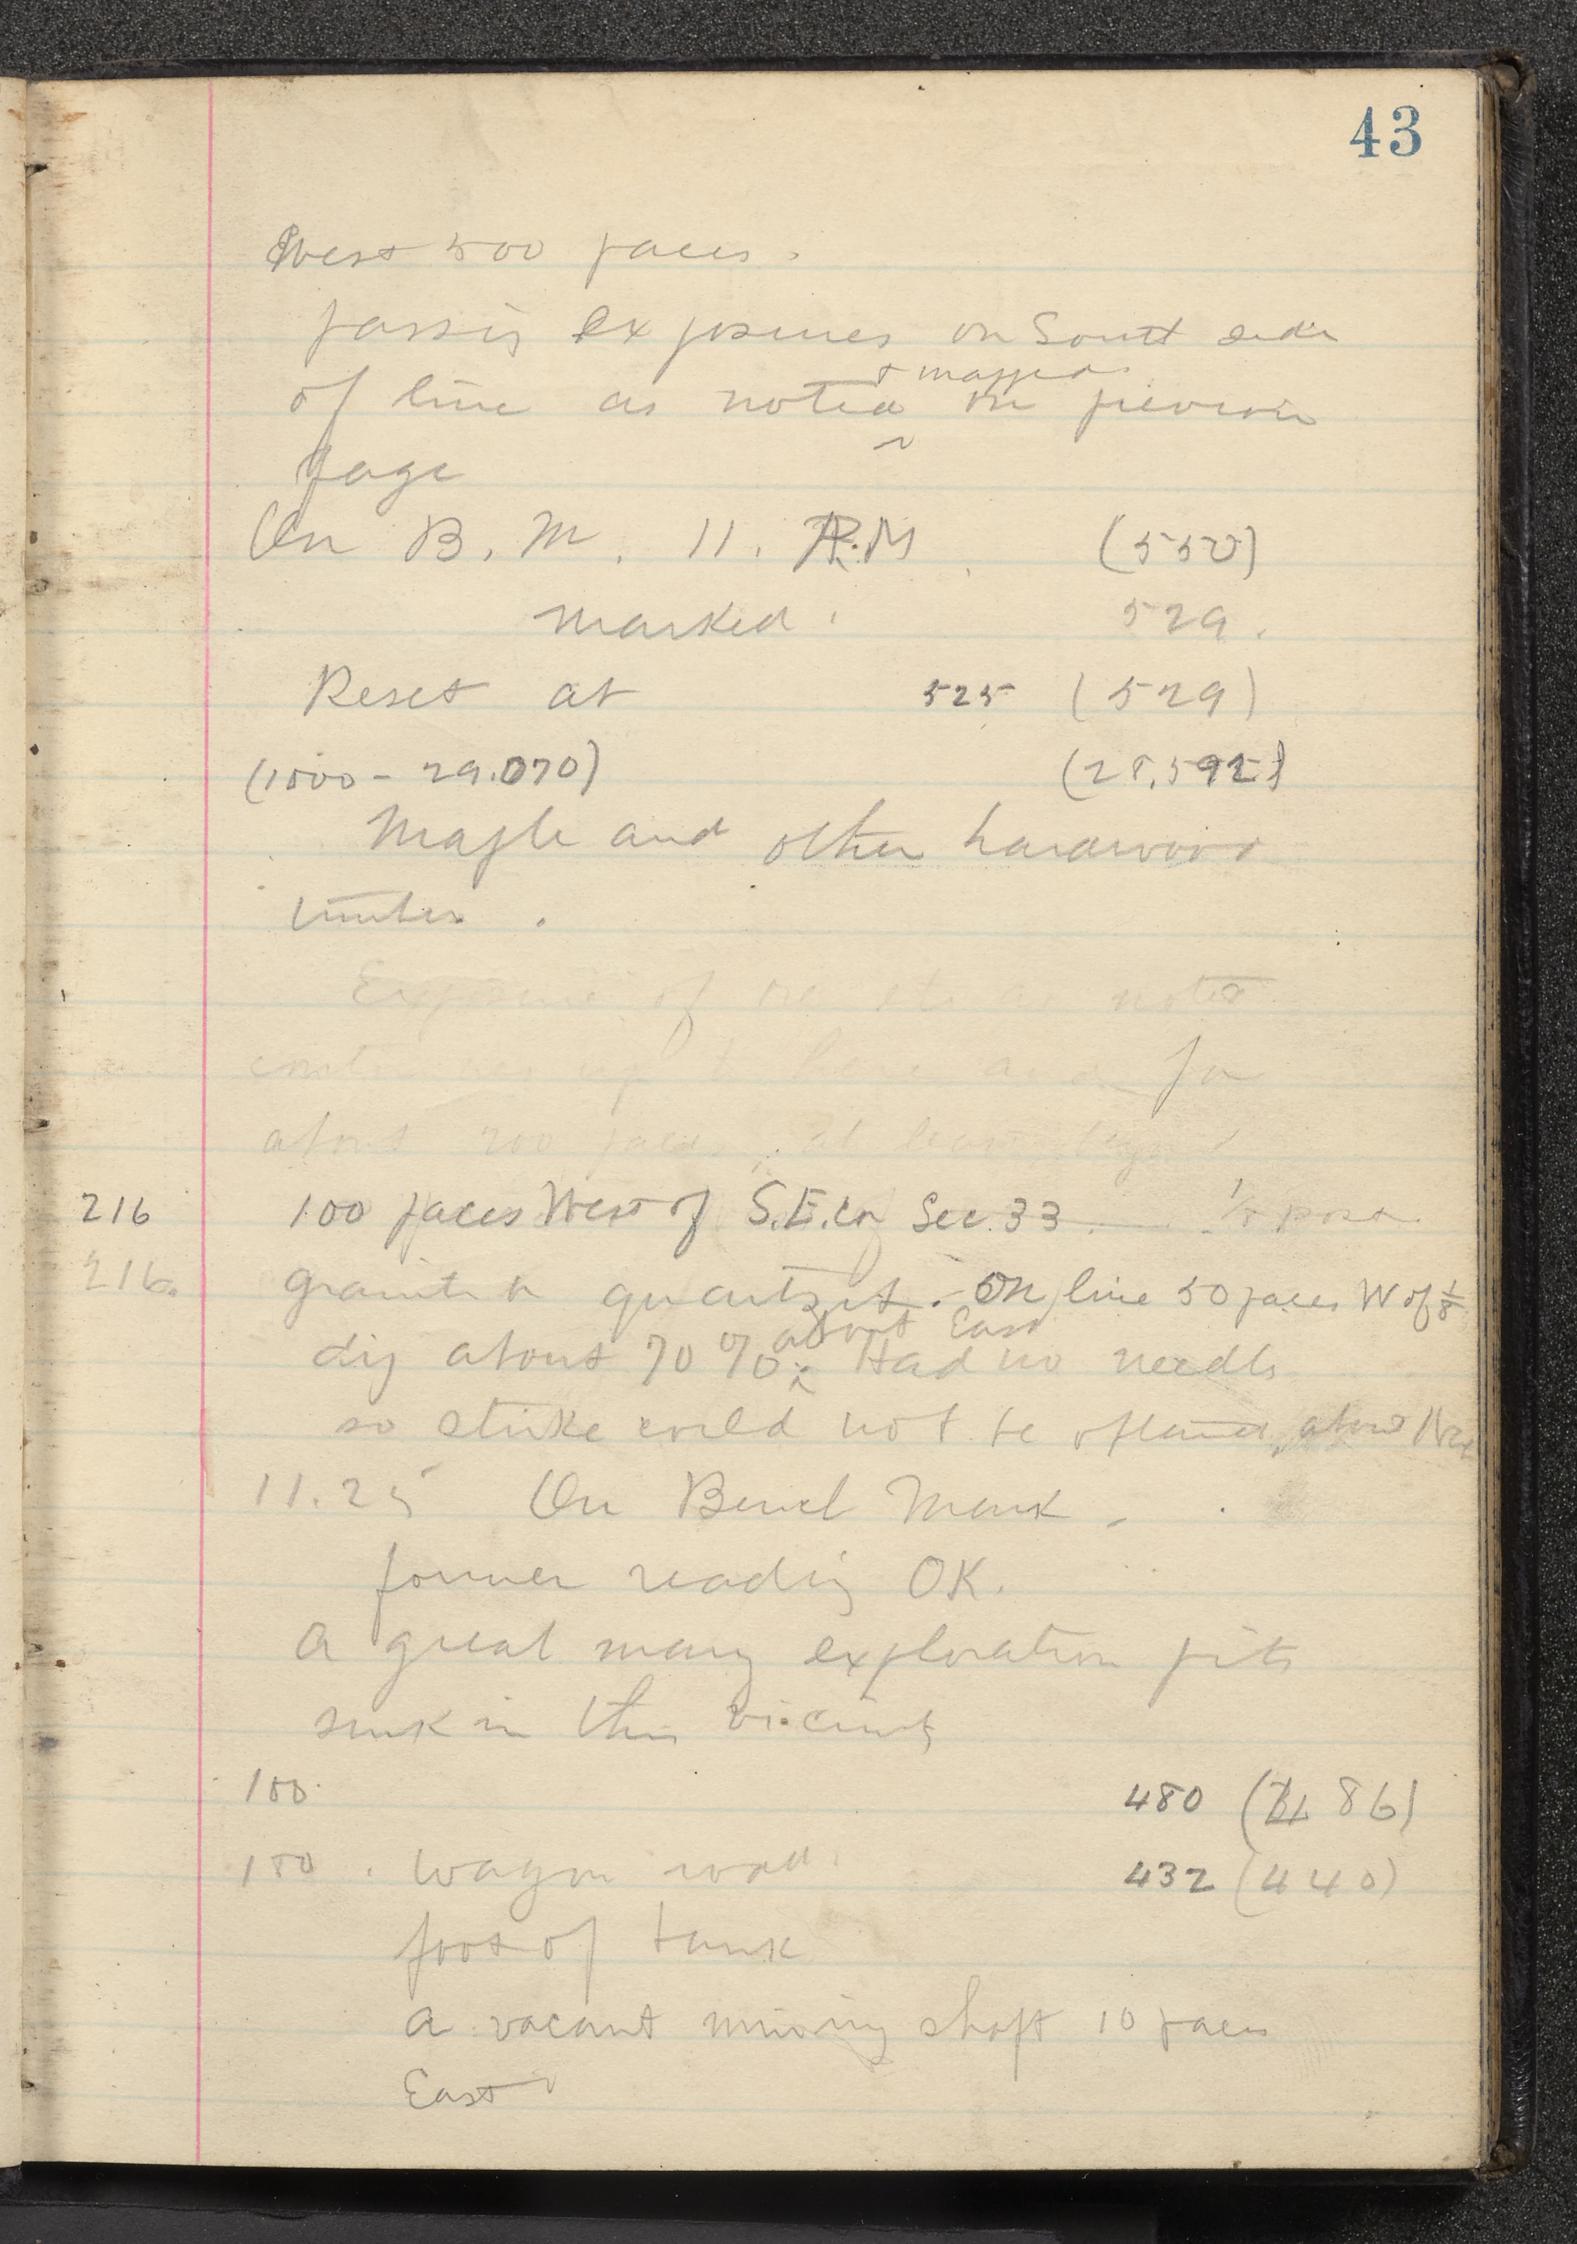 43
West 500 paces.
passing exposures on South side
of line as noted + mapped on previous
page
On B. M. 11. A.M. (550)
marked. 529.
Reset at 525 (529)
(1000 - 29.070) (28.592)
Maple and other hardwood
timber.
Exposure of ore etc as noted
continues up to here and for
about 200 paces, at least, beyond
216 100 paces West of S.E. Cor Sec. 33 1/8 post
216. granite or quartzite. - On line 50 paces W of 1/8
dip about 70% about East. Had no needle
so strike could not be obtained, about
11.25 On Bench Mark.
former reading OK.
A great many exploration pits
sunk in this vicinity
100. 480 (486)
180. Wagon road. 432 (440)
foot of bank
a vacant mining shaft 10 paces
East